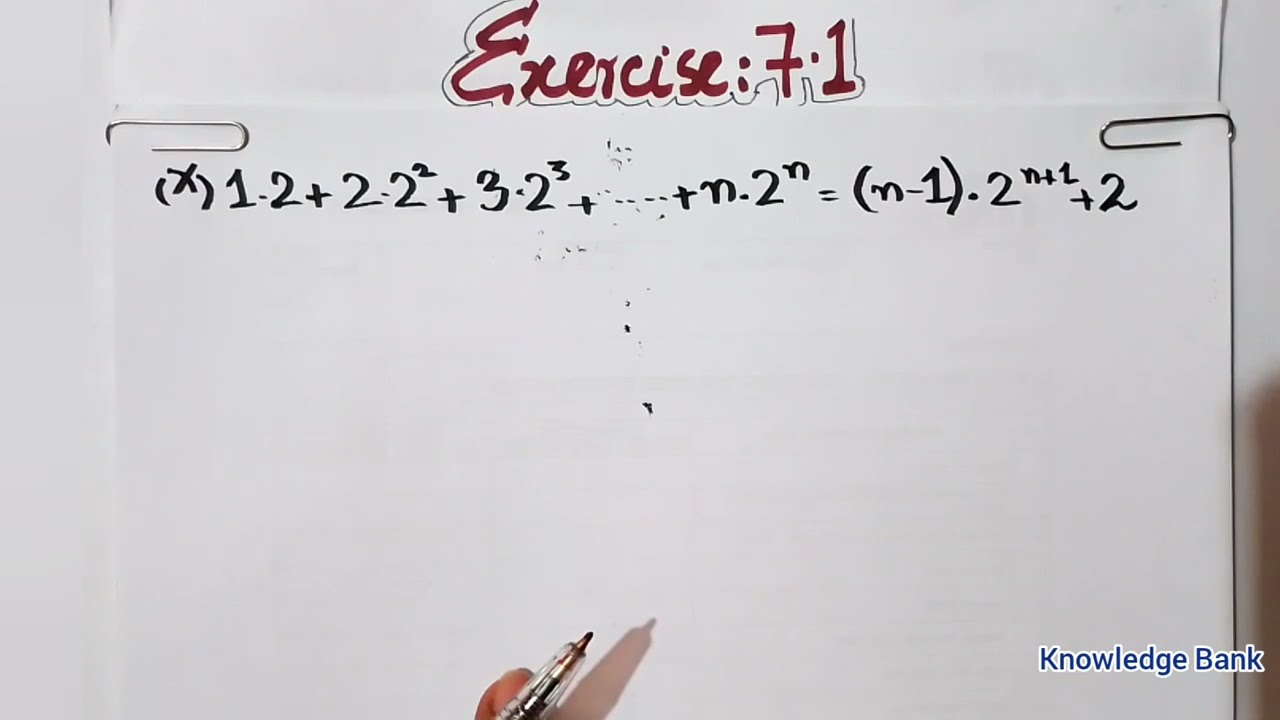 Exercise: 7.1
(x) 1·2 + 2·2² + 3·2³ + ...... + n·2ⁿ = (n-1)·2ⁿ⁺¹ + 2
Knowledge Bank